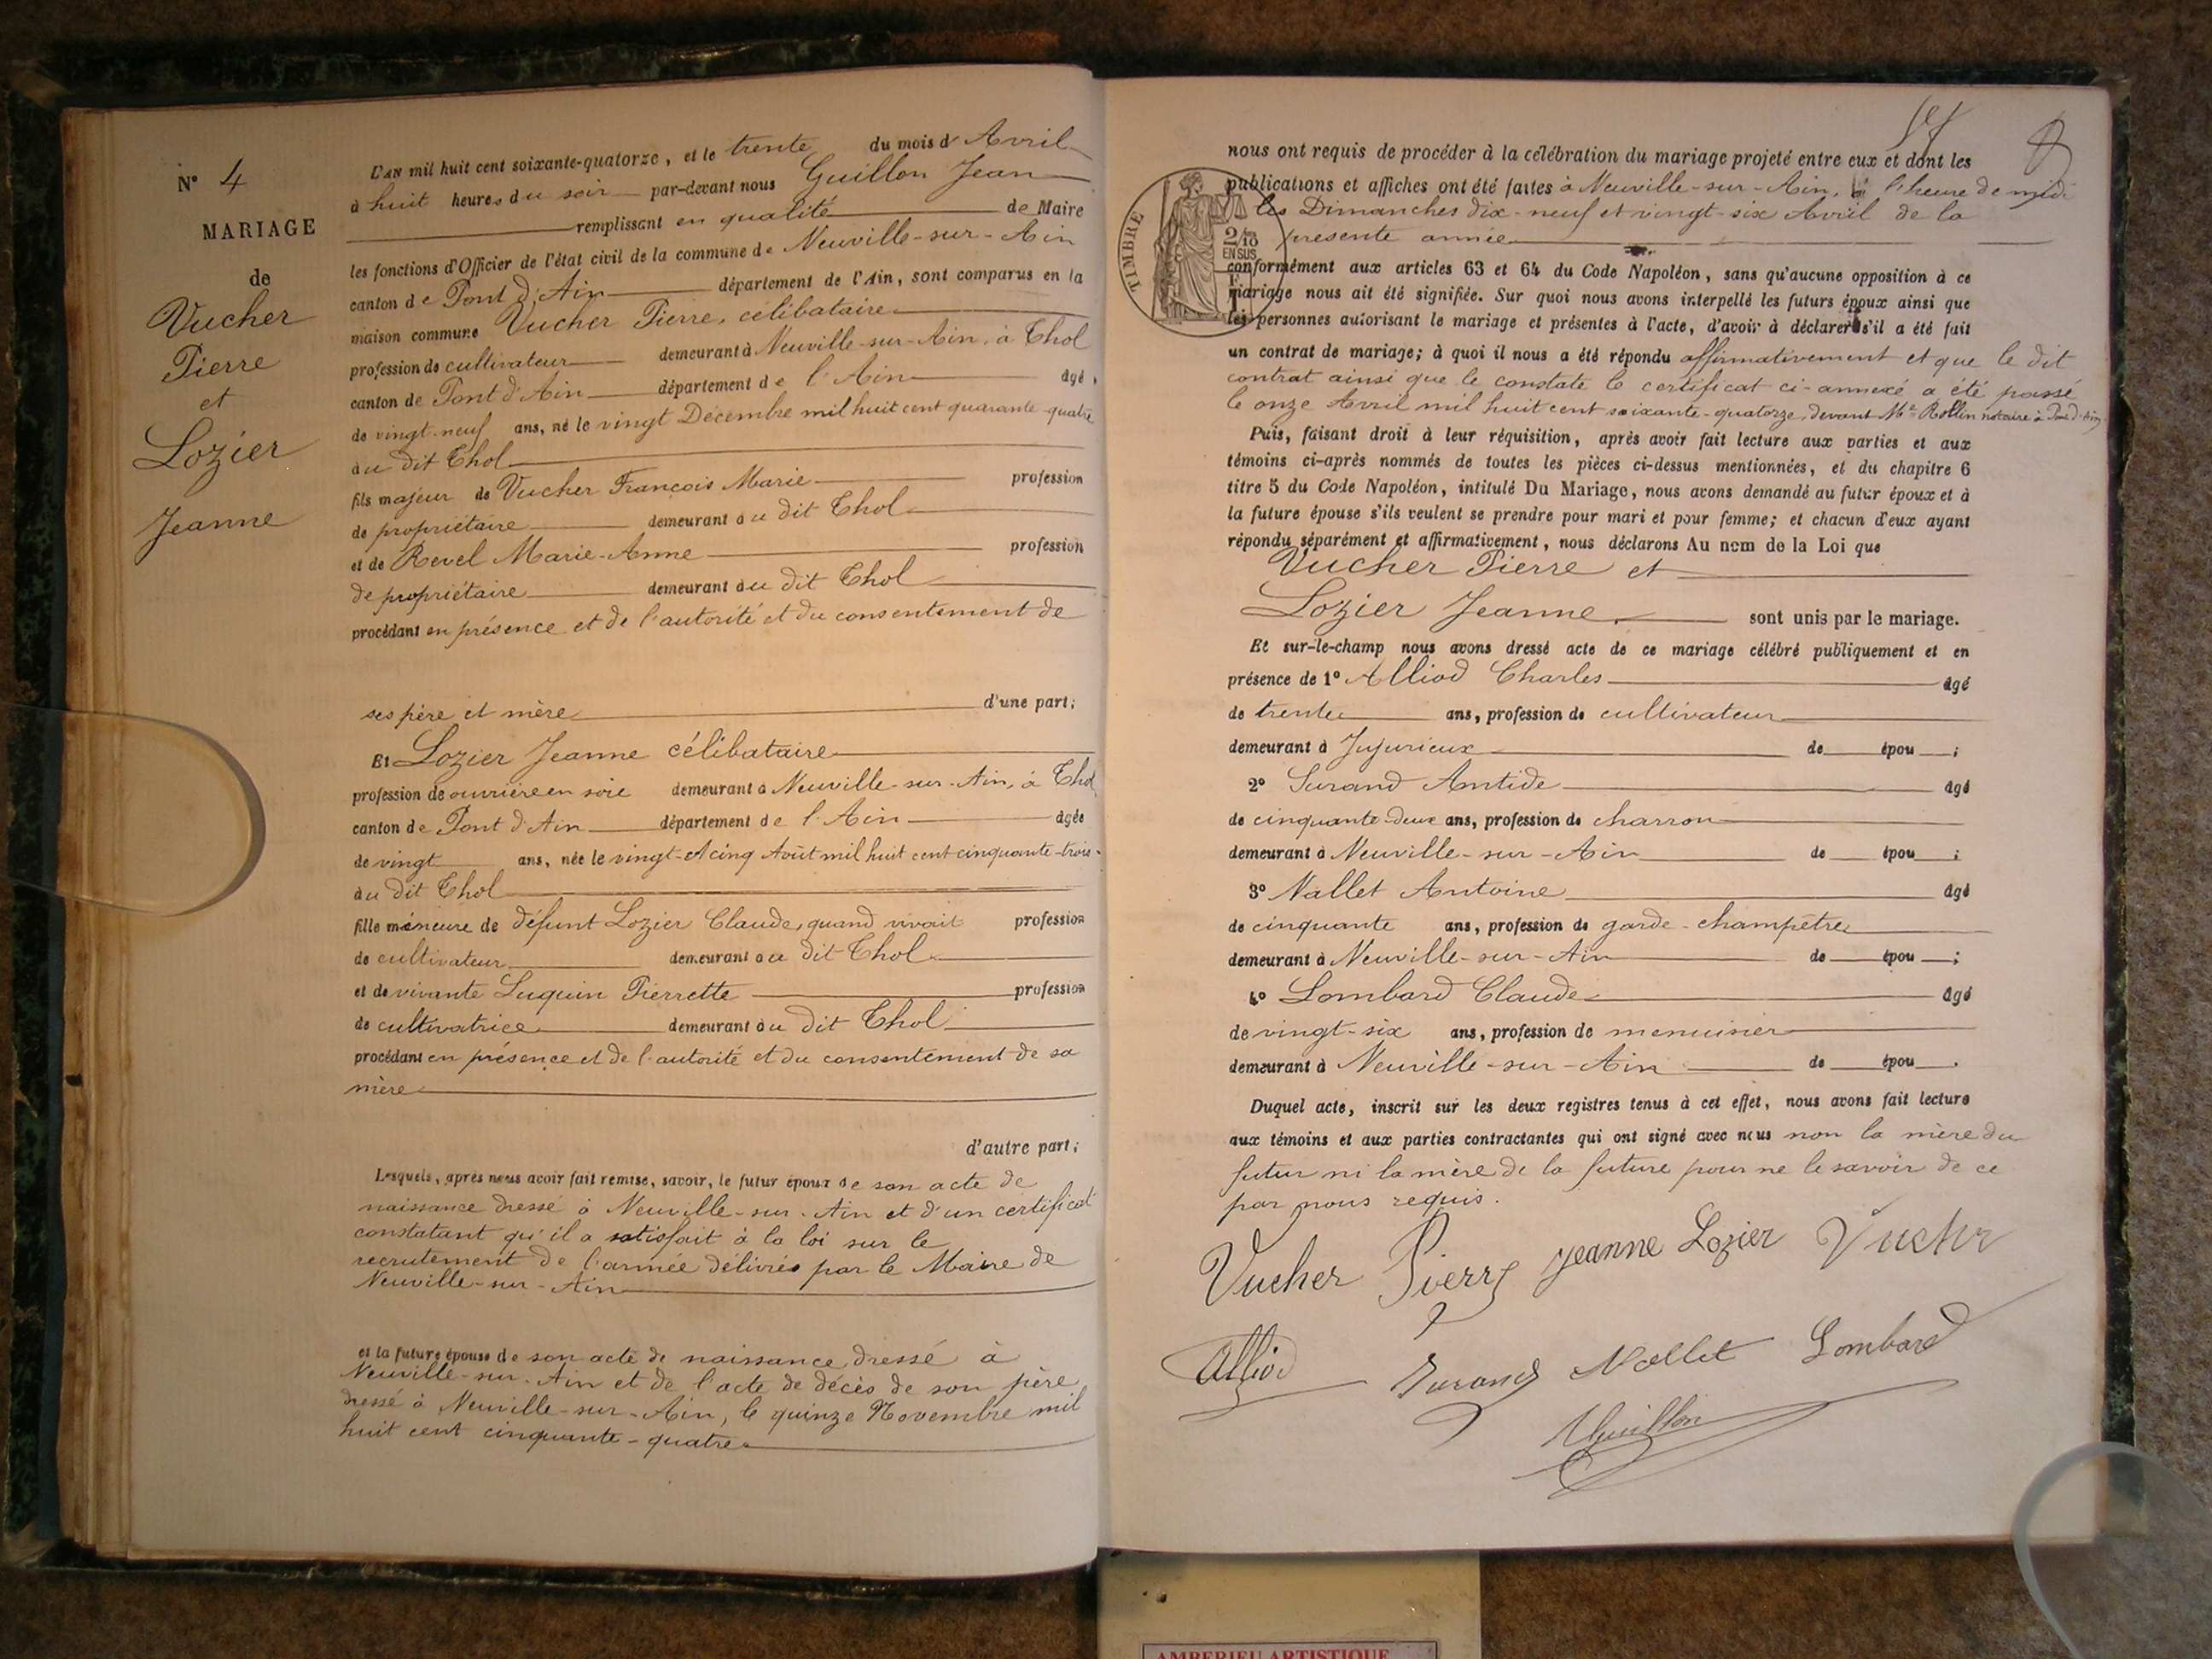 N° 4
MARIAGE
de
Vucher
Pierre
et
Lozier
Jeanne
L'AN mil huit cent soixante-quatorze, et le trente du mois d'Avril
à huit heures du soir par-devant nous Guillon Jean
remplissant en qualité de Maire
les fonctions d'Officier de l'état civil de la commune de Neuville-sur-Ain
canton de Pont d'Ain département de l'Ain, sont comparus en la
maison commune Vucher Pierre, célibataire
profession de cultivateur demeurant à Neuville-sur-Ain, à Thol
canton de Pont d'Ain département de l'Ain âgé
de vingt-neuf ans, né le vingt Décembre mil huit cent quarante-quatre
au dit Thol
fils majeur de Vucher François Marie profession
de propriétaire demeurant au dit Thol
et de Revel Marie-Anne profession
de propriétaire demeurant au dit Thol
procédant en présence et de l'autorité et du consentement de
ses père et mère d'une part;
Et Lozier Jeanne célibataire
profession de ouvrière en soie demeurant à Neuville-sur-Ain, à Thol
canton de Pont d'Ain département de l'Ain âgée
de vingt ans, née le vingt-et cinq Août mil huit cent cinquante-trois
au dit Thol
fille mineure de défunt Lozier Claude, quand vivait profession
de cultivateur demeurant au dit Thol
et de vivante Luquin Pierrette profession
de cultivatrice demeurant au dit Thol
procédant en présence et de l'autorité et du consentement de sa
mère
d'autre part;
Lesquels, après nous avoir fait remise, savoir, le futur époux de son acte de
naissance dressé à Neuville-sur-Ain et d'un certificat
constatant qu'il a satisfait à la loi sur le
recrutement de l'armée délivrés par le Maire de
Neuville-sur-Ain
et la future épouse de son acte de naissance dressé à
Neuville-sur-Ain et de l'acte de décès de son père
dressé à Neuville-sur-Ain, le quinze Novembre mil
huit cent cinquante-quatre
8
nous ont requis de procéder à la célébration du mariage projeté entre eux et dont les
publications et affiches ont été faites à Neuville-sur-Ain, à l'heure de midi
les Dimanches dix-neuf et vingt-six Avril de la
présente année
TIMBRE
2/10
EN SUS
conformément aux articles 63 et 64 du Code Napoléon, sans qu'aucune opposition à ce
mariage nous ait été signifiée. Sur quoi nous avons interpellé les futurs époux ainsi que
les personnes autorisant le mariage et présentes à l'acte, d'avoir à déclarer s'il a été fait
un contrat de mariage; à quoi il nous a été répondu affirmativement et que le dit
contrat ainsi que le constate le certificat ci-annexé a été passé
le onze Avril mil huit cent soixante-quatorze, devant Me Rollin notaire à Pont d'Ain
Puis, faisant droit à leur réquisition, après avoir fait lecture aux parties et aux
témoins ci-après nommés de toutes les pièces ci-dessus mentionnées, et du chapitre 6
titre 5 du Code Napoléon, intitulé Du Mariage, nous avons demandé au futur époux et à
la future épouse s'ils veulent se prendre pour mari et pour femme; et chacun d'eux ayant
répondu séparément et affirmativement, nous déclarons Au nom de la Loi que
Vucher Pierre et
Lozier Jeanne sont unis par le mariage.
Et sur-le-champ nous avons dressé acte de ce mariage célébré publiquement et en
présence de 1° Alliod Charles âgé
de trente ans, profession de cultivateur
demeurant à Jujurieux de épou ;
2° Surand Antide âgé
de cinquante-deux ans, profession de charron
demeurant à Neuville-sur-Ain de épou ;
3° Nallet Antoine âgé
de cinquante ans, profession de garde-champêtre
demeurant à Neuville-sur-Ain de épou ;
4° Lombard Claude âgé
de vingt-six ans, profession de menuisier
demeurant à Neuville-sur-Ain de épou .
Duquel acte, inscrit sur les deux registres tenus à cet effet, nous avons fait lecture
aux témoins et aux parties contractantes qui ont signé avec nous non la mère du
futur ni la mère de la future pour ne le savoir de ce
par nous requis.
Vucher Pierre Jeanne Lozier Vucher
Alliod Surand Nallet Lombard
Guillon
AMBERIEU ARTISTIQUE